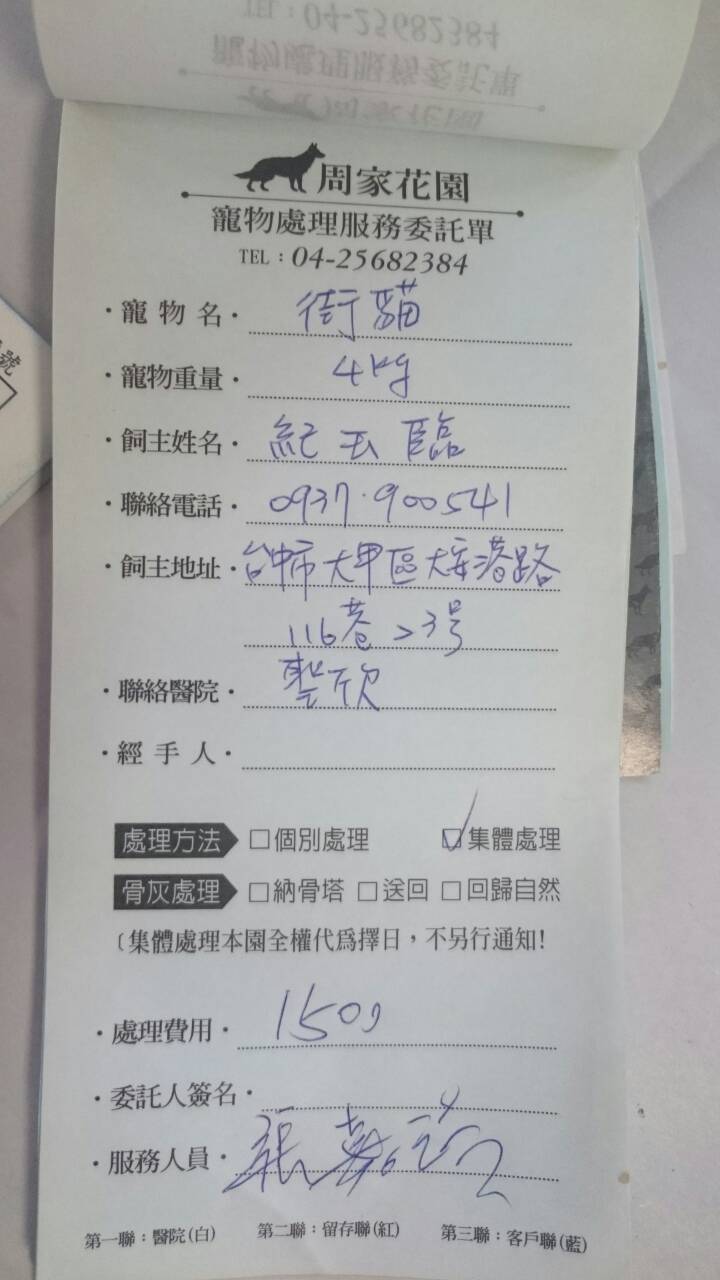 周家花園
寵物處理服務委託單
TEL：04-25682384
・寵物名・ 街貓
・寵物重量・ 4kg
・飼主姓名・ 紀玉臨
・聯絡電話・ 0937.900541
・飼主地址・ 台中市大甲區大安港路
116巷23号
・聯絡醫院・ 聖欣
・經手人・
處理方法 □個別處理 ☑集體處理
骨灰處理 □納骨塔 □送回 □回歸自然
(集體處理本園全權代爲擇日，不另行通知!
・處理費用・ 1500
・委託人簽名・
・服務人員・ 張
第一聯：醫院(白) 第二聯：留存聯(紅) 第三聯：客戶聯(藍)